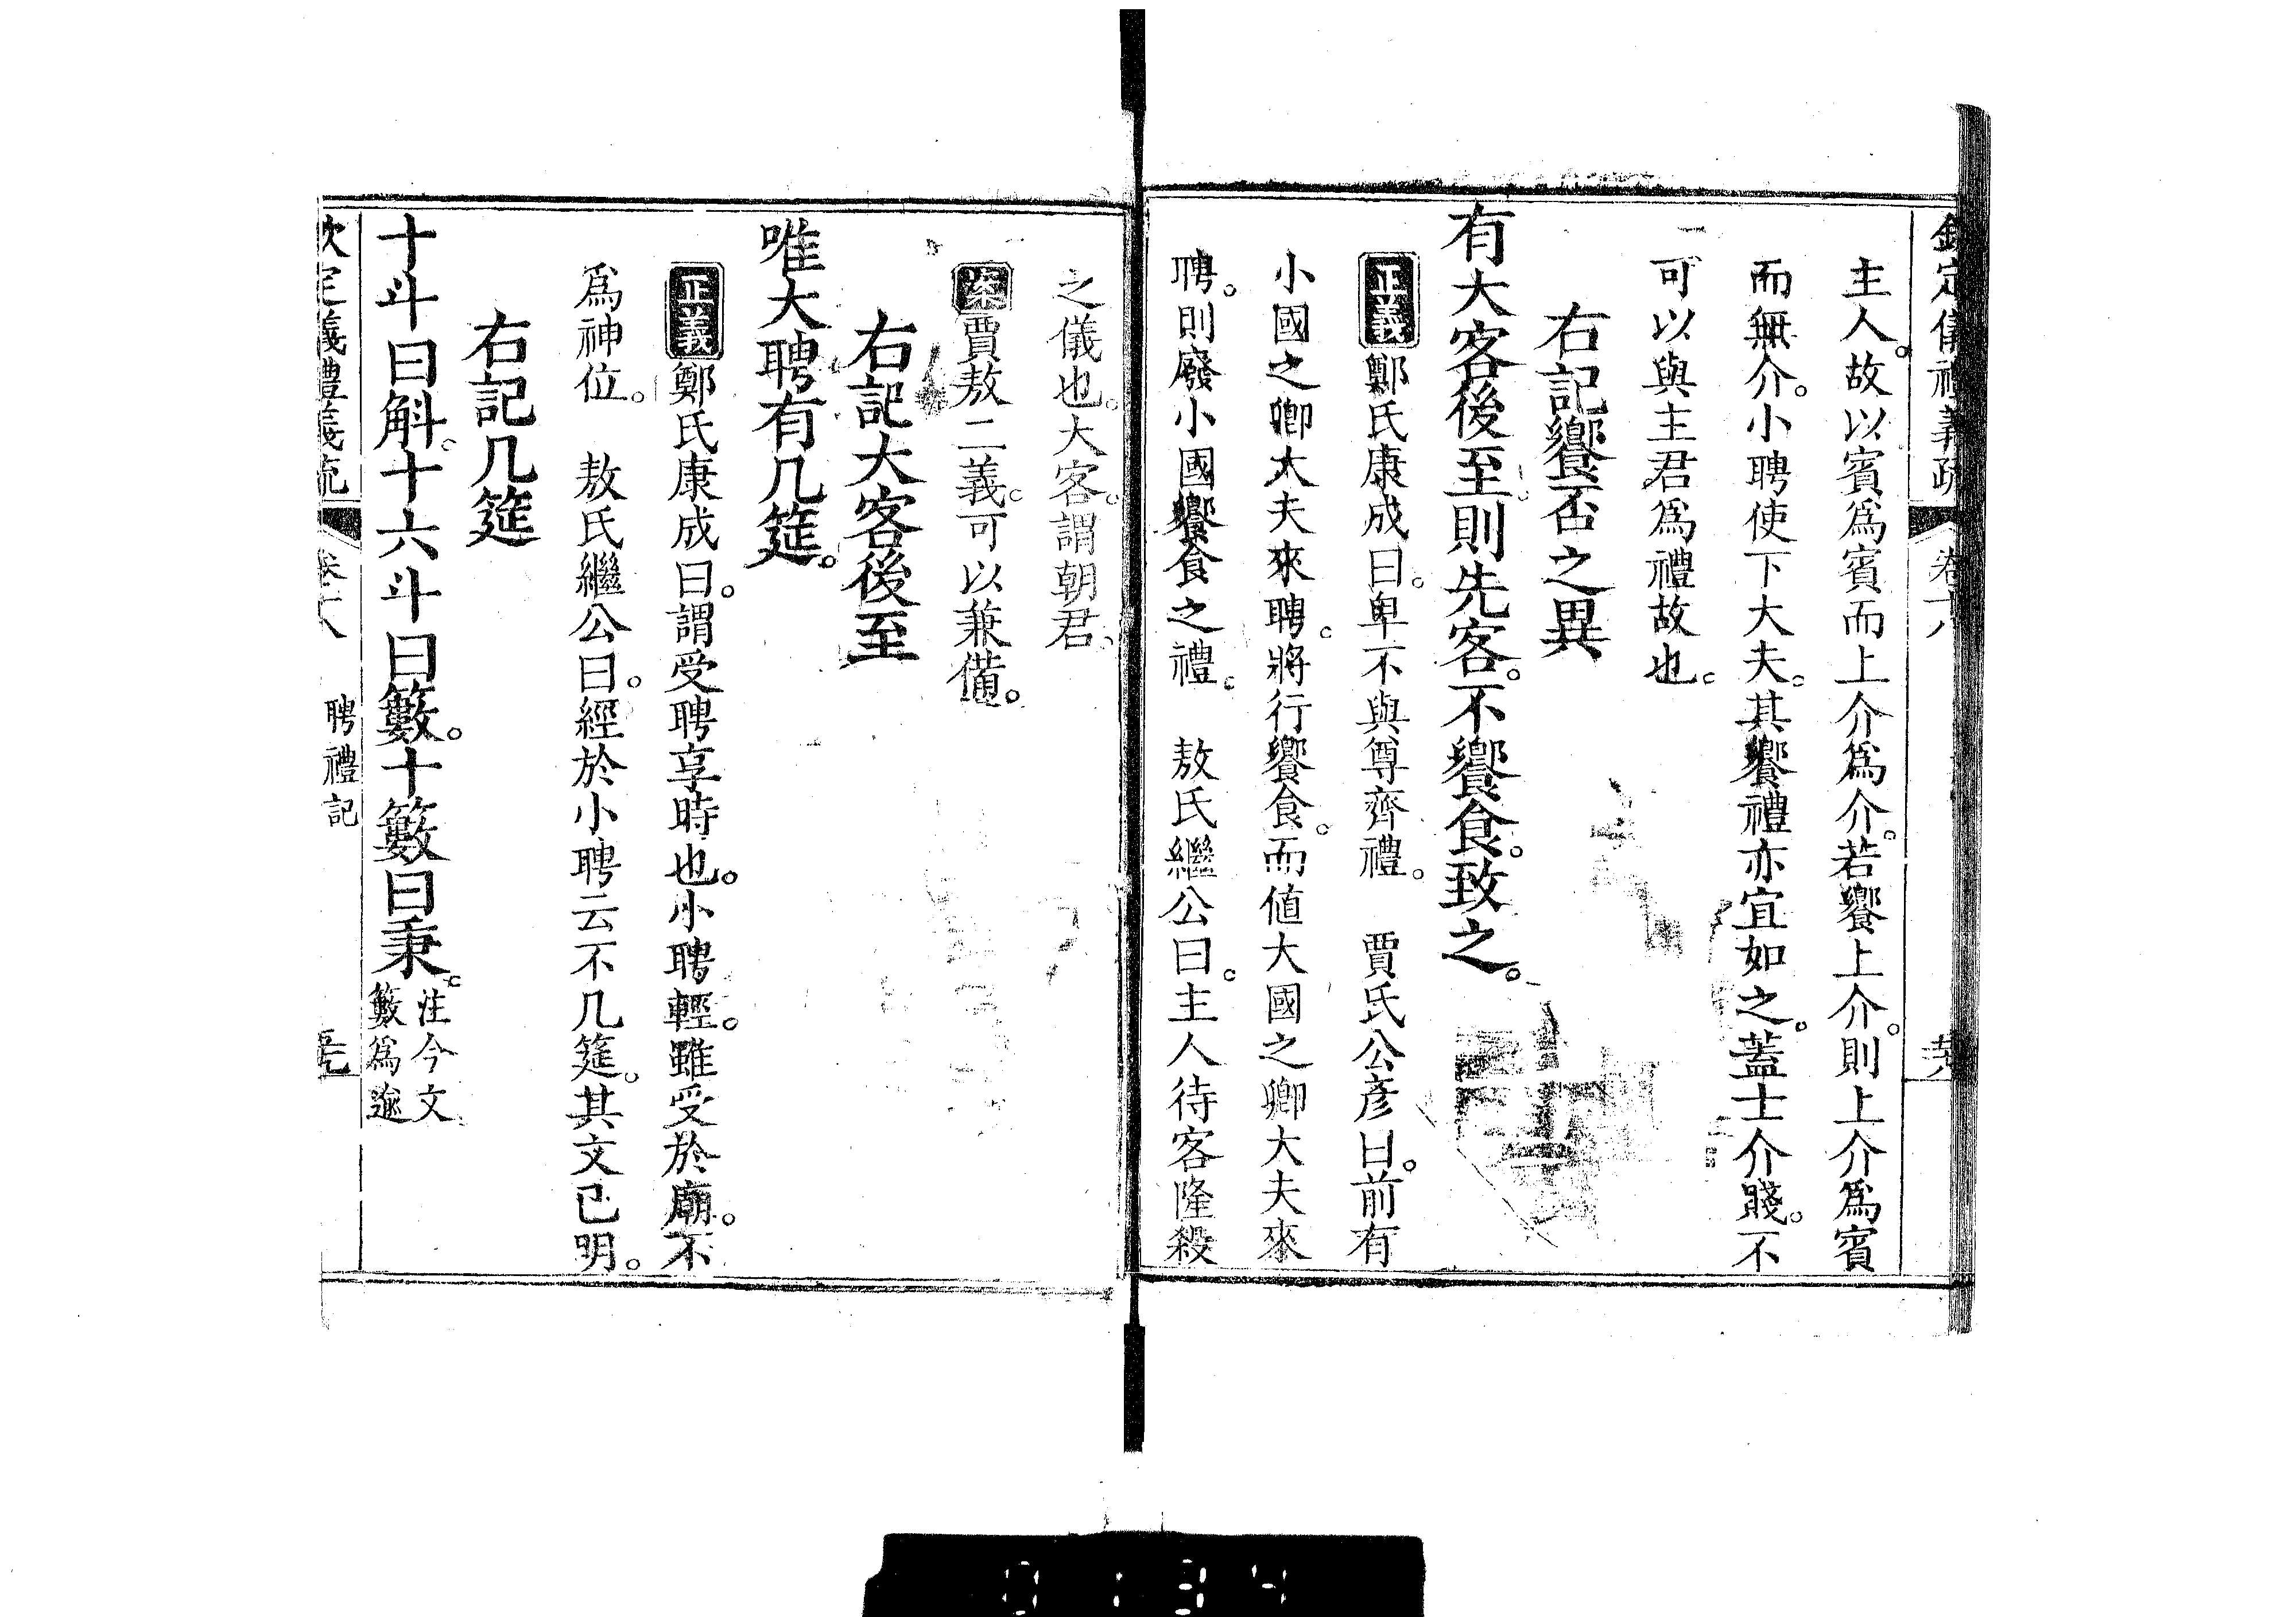 欽定儀禮義疏 卷十八
主人。故以賓爲賓而上介爲介。若饗上介。則上介爲賓
而無介。小聘使下大夫。其饗禮亦宜如之。蓋士介賤。不
可以與主君爲禮故也。
右記饗否之異
有大客後至。則先客。不饗食。致之。
正義鄭氏康成曰。卑不與尊齊禮。 賈氏公彥曰。前有
小國之卿大夫來聘。將行饗食。而值大國之卿大夫來
聘。則廢小國饗食之禮。 敖氏繼公曰。主人待客隆殺
之儀也。大客。謂朝君。
案賈敖二義。可以兼備。
右記大客後至
唯大聘有几筵。
正義鄭氏康成曰。謂受聘享時也。小聘輕。雖受於廟。不
爲神位。 敖氏繼公曰。經於小聘云不几筵。其文已明。
右記几筵
十斗曰斛。十六斗曰籔。十籔曰秉。注今文
籔爲逾
欽定儀禮義疏 卷十八 聘禮記
0134